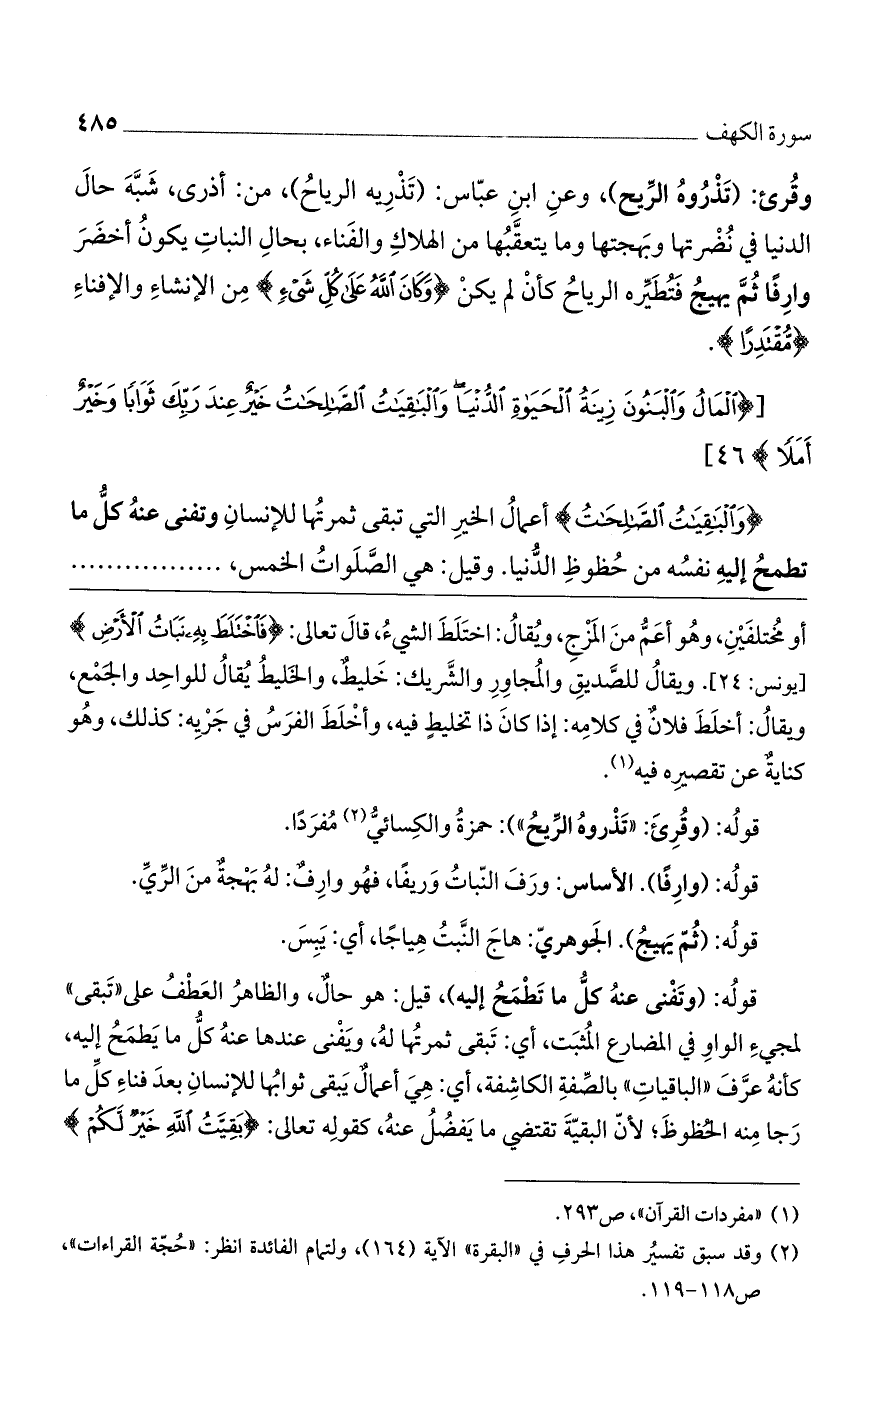 سورة الكهف ٤٨٥
وقُرئ: (تَذْرُوهُ الرِّيح)، وعنِ ابنِ عبّاس: (تَذْرِيه الرياحُ)، من: أذرى، شَبَّهَ حالَ
الدنيا في نُضْرتها وبَهجتها وما يتعقَّبُها من الهلاكِ والفَناء، بحالِ النباتِ يكونُ أخضَرَ
وارِفًا ثُمَّ يهيجُ فَتُطَيِّره الرياحُ كأنْ لم يكنْ ﴿وَكَانَ ٱللَّهُ عَلَىٰ كُلِّ شَىْءٍ﴾ مِن الإنشاءِ والإفناءِ
﴿مُّقْتَدِرًا﴾.
[﴿ٱلْمَالُ وَٱلْبَنُونَ زِينَةُ ٱلْحَيَوٰةِ ٱلدُّنْيَا ۖ وَٱلْبَٰقِيَٰتُ ٱلصَّٰلِحَٰتُ خَيْرٌ عِندَ رَبِّكَ ثَوَابًا وَخَيْرٌ
أَمَلًا﴾ ٤٦]
﴿وَٱلْبَٰقِيَٰتُ ٱلصَّٰلِحَٰتُ﴾ أعمالُ الخيرِ التي تبقى ثمرتُها للإنسانِ وتفنى عنهُ كلُّ ما
تطمحُ إليهِ نفسُه من حُظوظِ الدُّنيا. وقيل: هي الصَّلَواتُ الخمس، .................
أو مُختلفَيْنِ، وهُو أعَمُّ منَ المَزْجِ، ويُقالُ: اختَلَطَ الشيءُ، قالَ تعالى: ﴿فَٱخْتَلَطَ بِهِۦ نَبَاتُ ٱلْأَرْضِ﴾
[يونس: ٢٤]. ويقالُ للصَّديقِ والمُجاوِرِ والشَّريك: خَليطٌ، والخَليطُ يُقالُ للواحِد والجَمْع،
ويقالُ: أخلَطَ فلانٌ في كلامِه: إذا كانَ ذا تخليطٍ فيه، وأخْلَطَ الفرَسُ في جَرْيِه: كذلك، وهُو
كنايةٌ عن تقصيرِه فيه(١).
قولُه: (وقُرِئَ: «تَذْروهُ الرِّيحُ»): حمزةُ والكِسائيُّ(٢) مُفرَدًا.
قولُه: (وارِفًا). الأساس: ورَفَ النّباتُ وَريفًا، فهُو وارِفٌ: لهُ بَهْجةٌ منَ الرِّيِّ.
قولُه: (ثُمّ يَهيجُ). الجَوهريّ: هاجَ النَّبتُ هِياجًا، أي: يَبِسَ.
قولُه: (وتَفْنى عنهُ كلُّ ما تَطْمَحُ إليه)، قيل: هو حالٌ، والظاهرُ العَطْفُ على «تَبقى»
لمجيءِ الواوِ في المضارعِ المُثبَت، أي: تَبقى ثمرتُها لهُ، ويَفْنى عندها عنهُ كلُّ ما يَطمَحُ إليه،
كأنهُ عرَّفَ «الباقياتِ» بالصِّفةِ الكاشِفة، أي: هِيَ أعمالٌ يَبقى ثوابُها للإنسانِ بعدَ فناءِ كلِّ ما
رَجا مِنه الحُظوظَ؛ لأنّ البقيّةَ تقتضي ما يَفضُلُ عنهُ، كقولِه تعالى: ﴿بَقِيَّتُ ٱللَّهِ خَيْرٌ لَّكُمْ﴾
(١) «مفردات القرآن»، ص٢٩٣.
(٢) وقد سبق تفسيُر هذا الحرفِ في «البقرة» الآية (١٦٤)، ولتمام الفائدة انظر: «حُجّة القراءات»،
ص١١٨-١١٩.